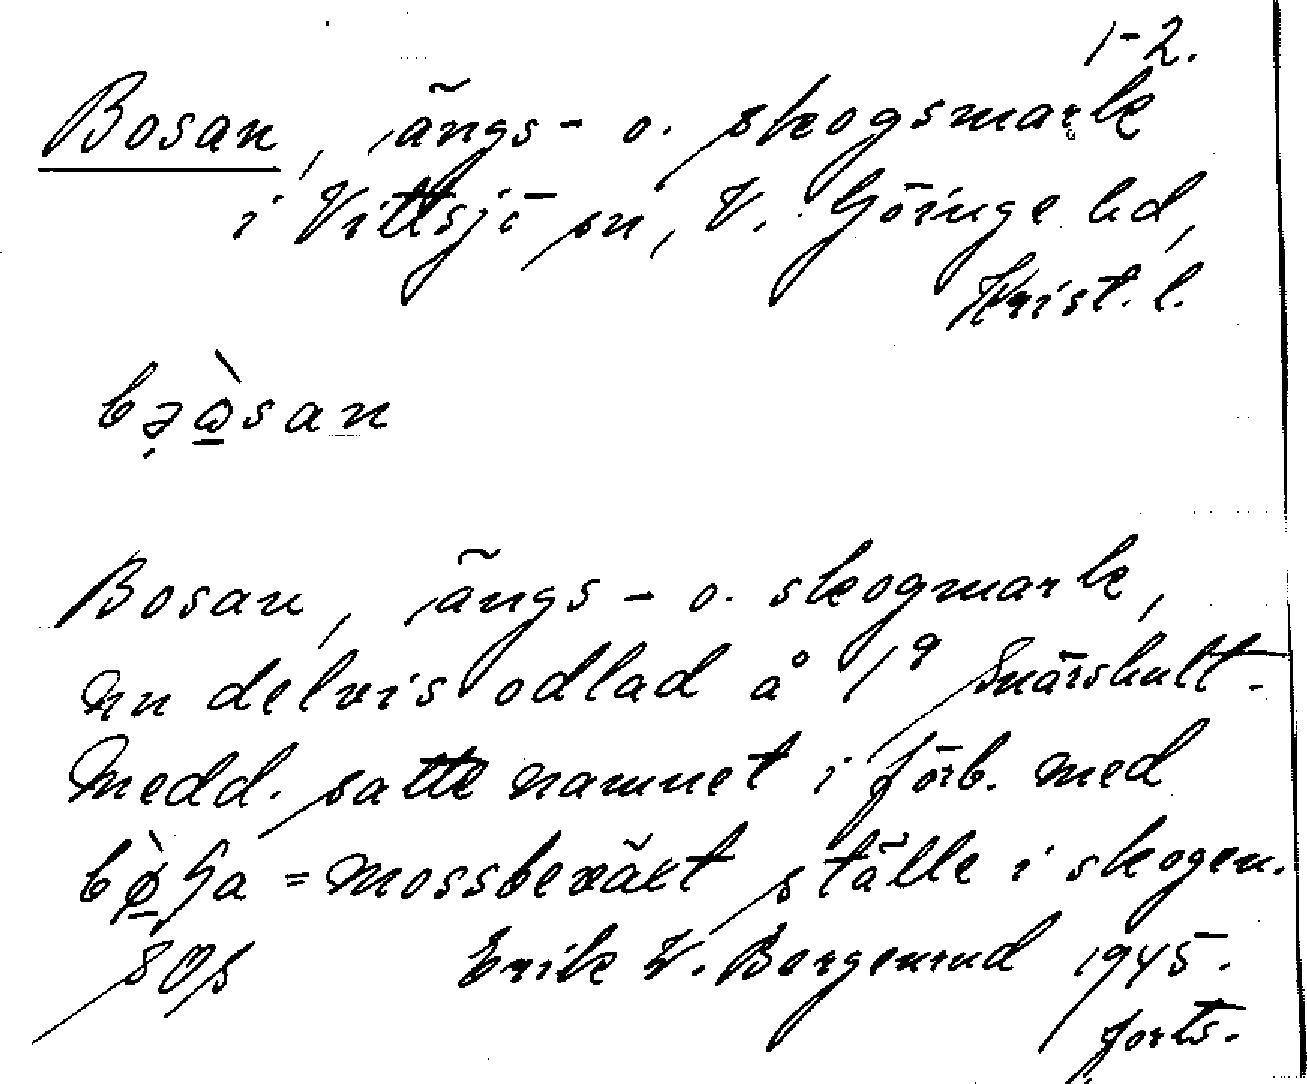 1-2.
Bosan, ängs- o. skogsmark
i Vittsjö sn, V. Göinge hd,
Krist. l.
bə̣ò̱san
Bosan, ängs- o. skogmark,
nu delvis odlad å 1⁹ Snärshult.
Medd. satte namnet i förb. med
= mossbeväxt ställe i skogen.
Erik W. Bergenrud 1945.
forts.